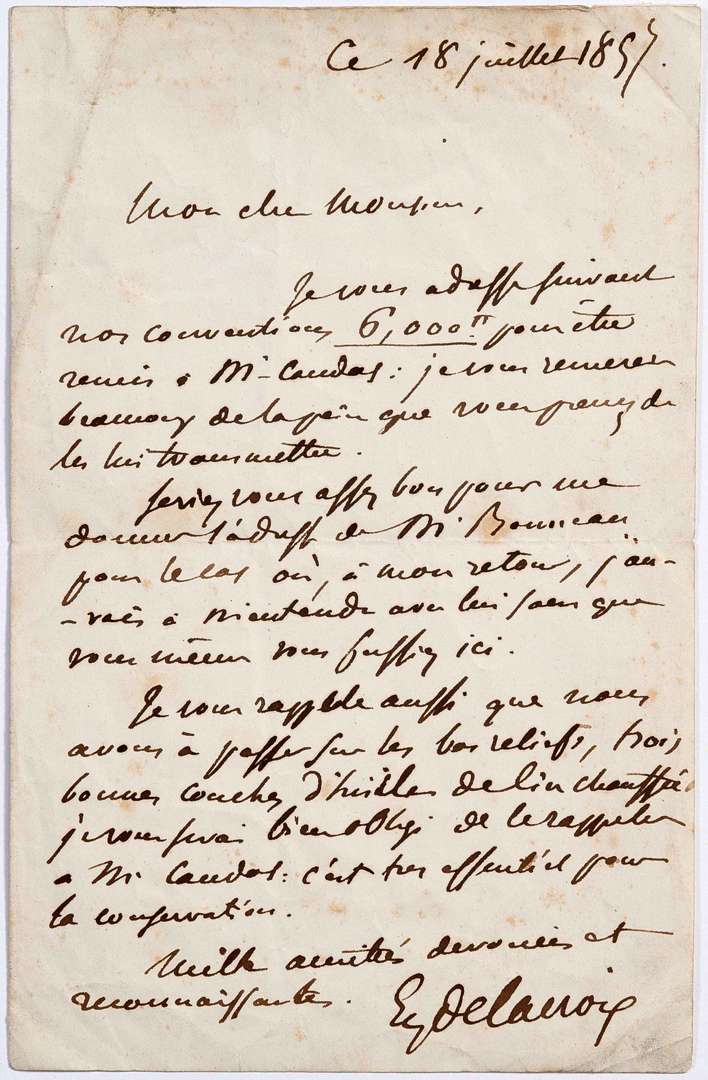 Ce 18 juillet 1857.
Mon cher Monsieur,
Je vous adresse suivant
nos conventions 6,000 ᶠᶠ pour être
remis à Mr Candas : je vous remercie
beaucoup de la peine que vous prenez de
les lui transmettre.
Seriez vous assez bon pour me
donner l'adresse de Mr Bonneau
pour le cas où, à mon retour, j'au-
-rais à m'entendre avec lui sans que
vous même vous fussiez ici.
Je vous rappelle aussi que nous
avons à passer sur les bas reliefs, trois
bonnes couches d'huile de lin chauffée
je vous serai bien obligé de le rappeler
a Mr Candas : c'est très essentiel pour
la conservation.
Mille amitiés dévouées et
reconnaissantes.
Eug Delacroix